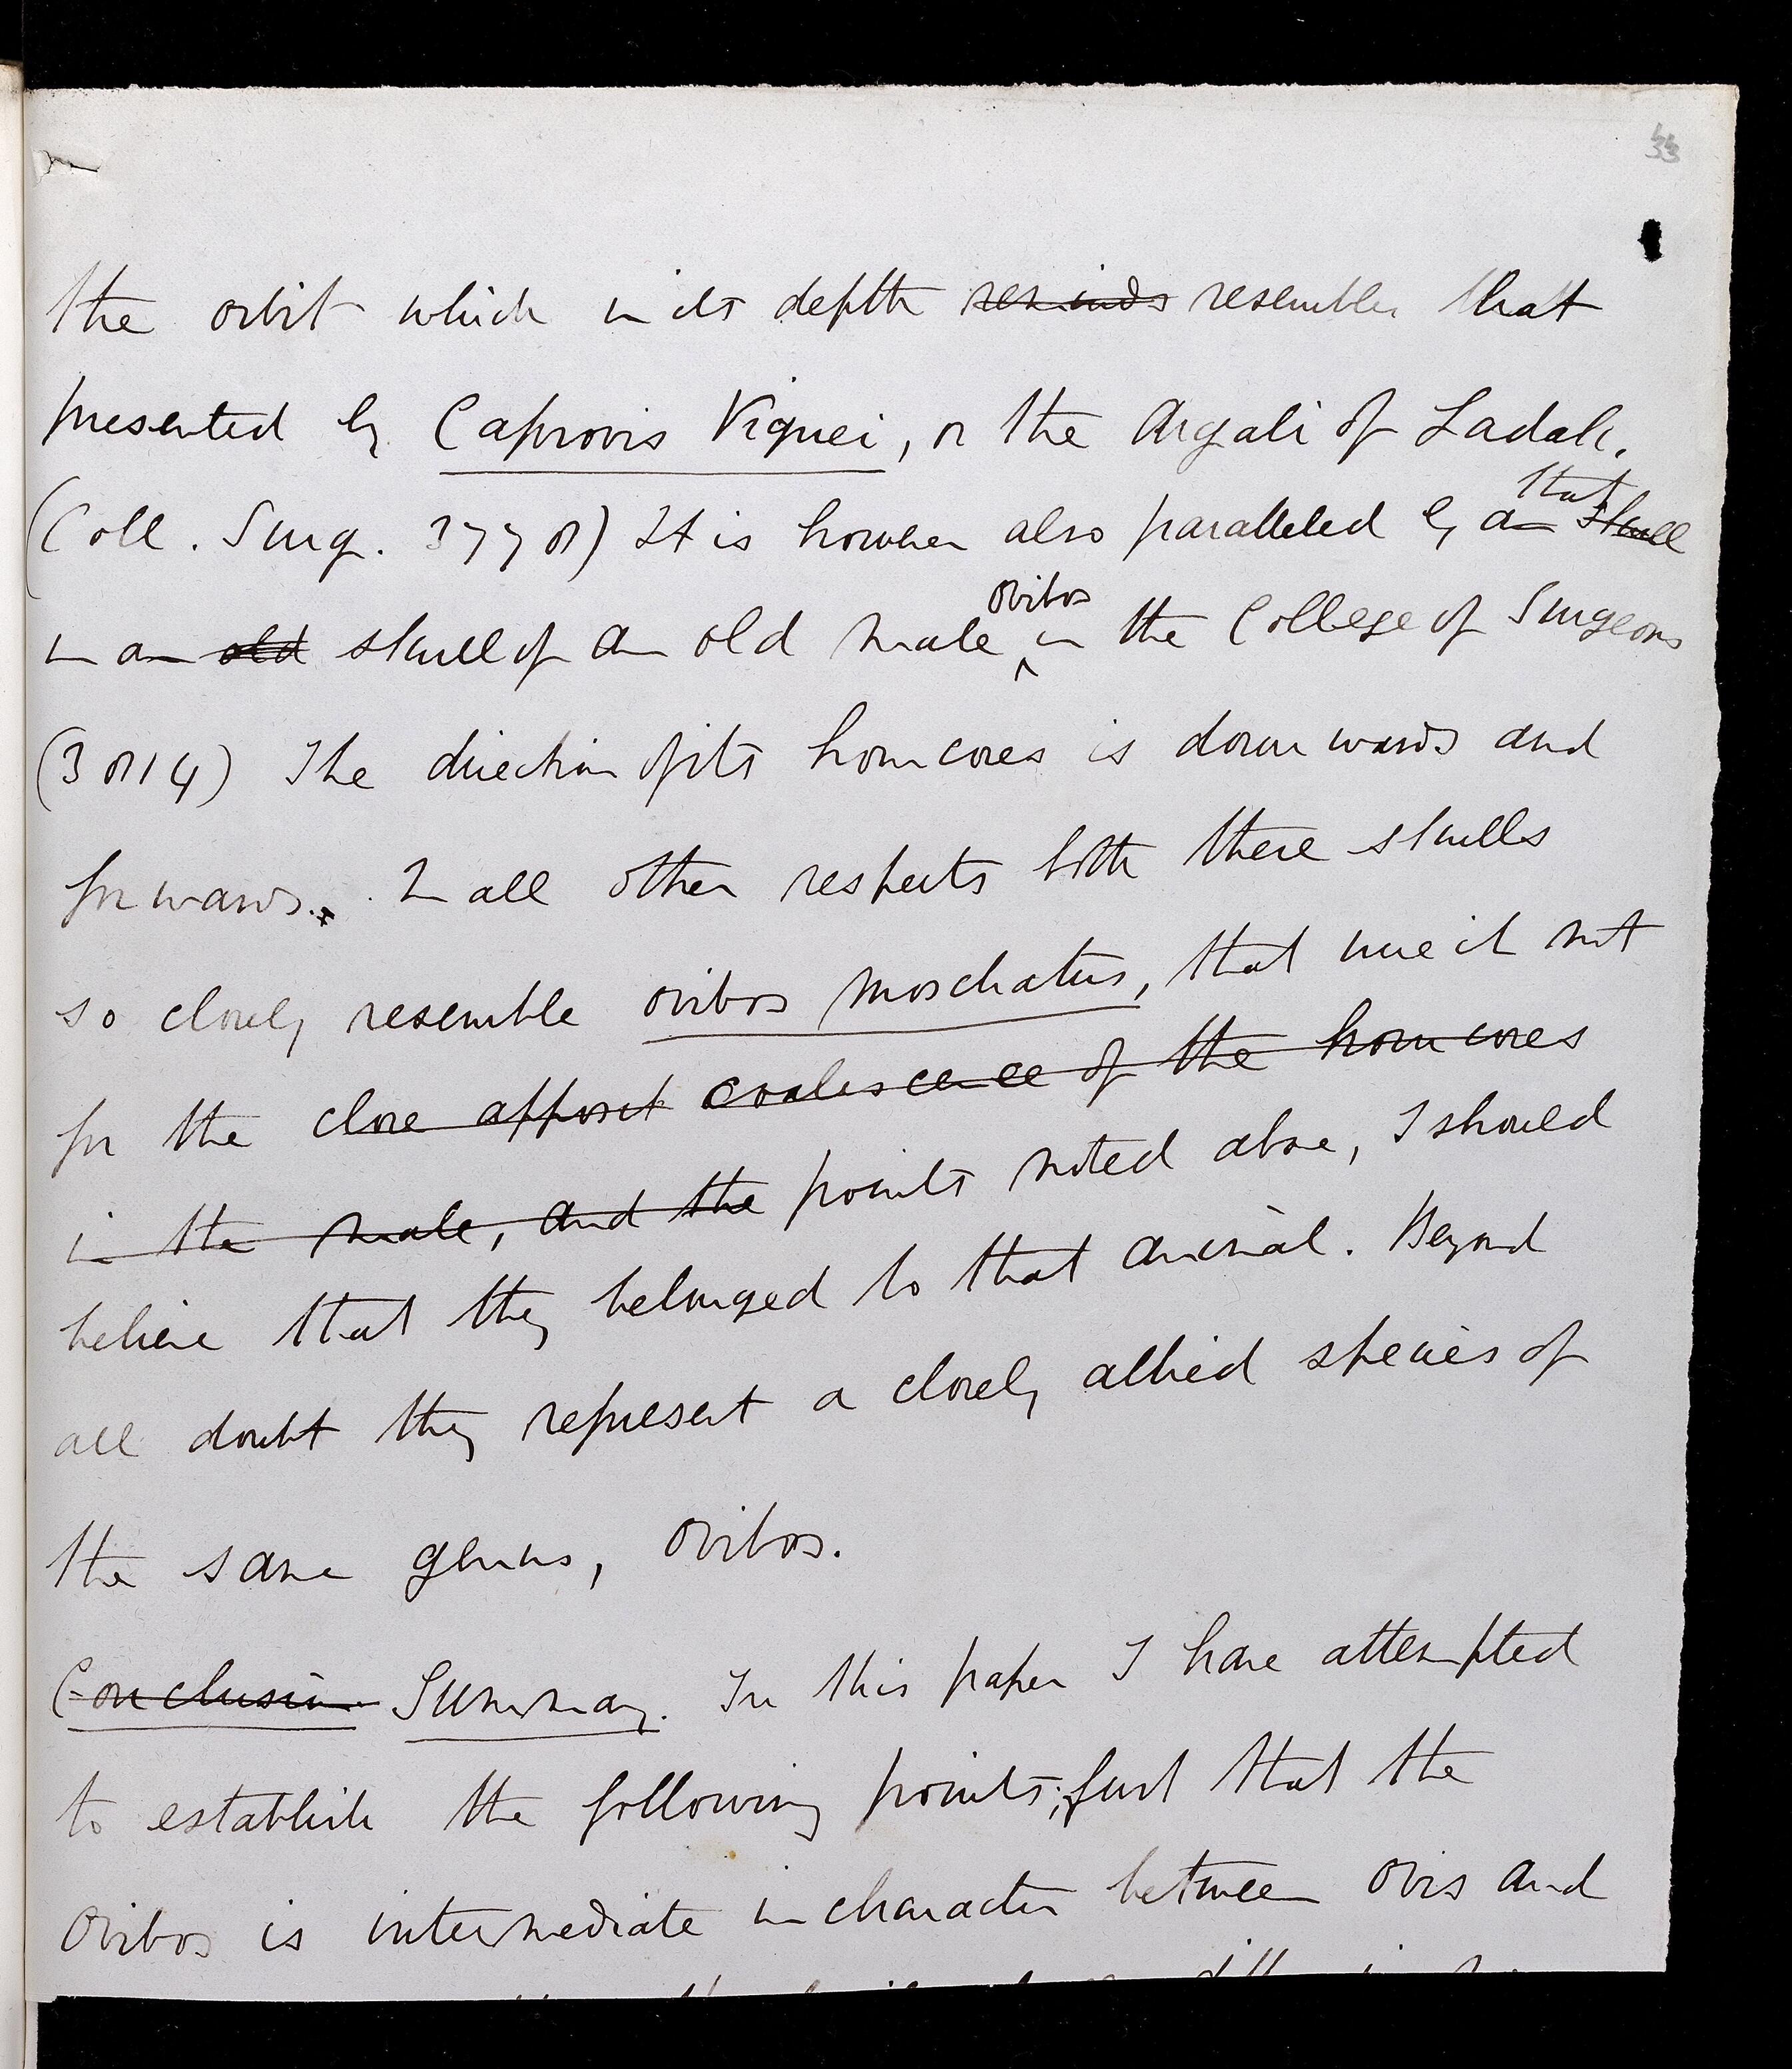 33
the orbit which in its depth reminds resembles that
presented by Caprovis Vignei, or the Argali of Ladak.
(Coll. Surg. 3778) It is however also paralleled by an skull that
in an old skull of an old male Ovibos in the College of Surgeons
(3814) The direction of its horncores is downwards and
forwards. In all other respects both these skulls
so closely resemble ovibos moschatus, that were it not
for the close apposit coalescence of the horncores
in the male, and the points noted above, I should
believe that they belonged to that animal. Beyond
all doubt they represent a closely allied species of
the same genus, Ovibos.
Conclusion Summary. In this paper I have attempted
to establish the following points; first that the
Ovibos is intermediate in character between Ovis and